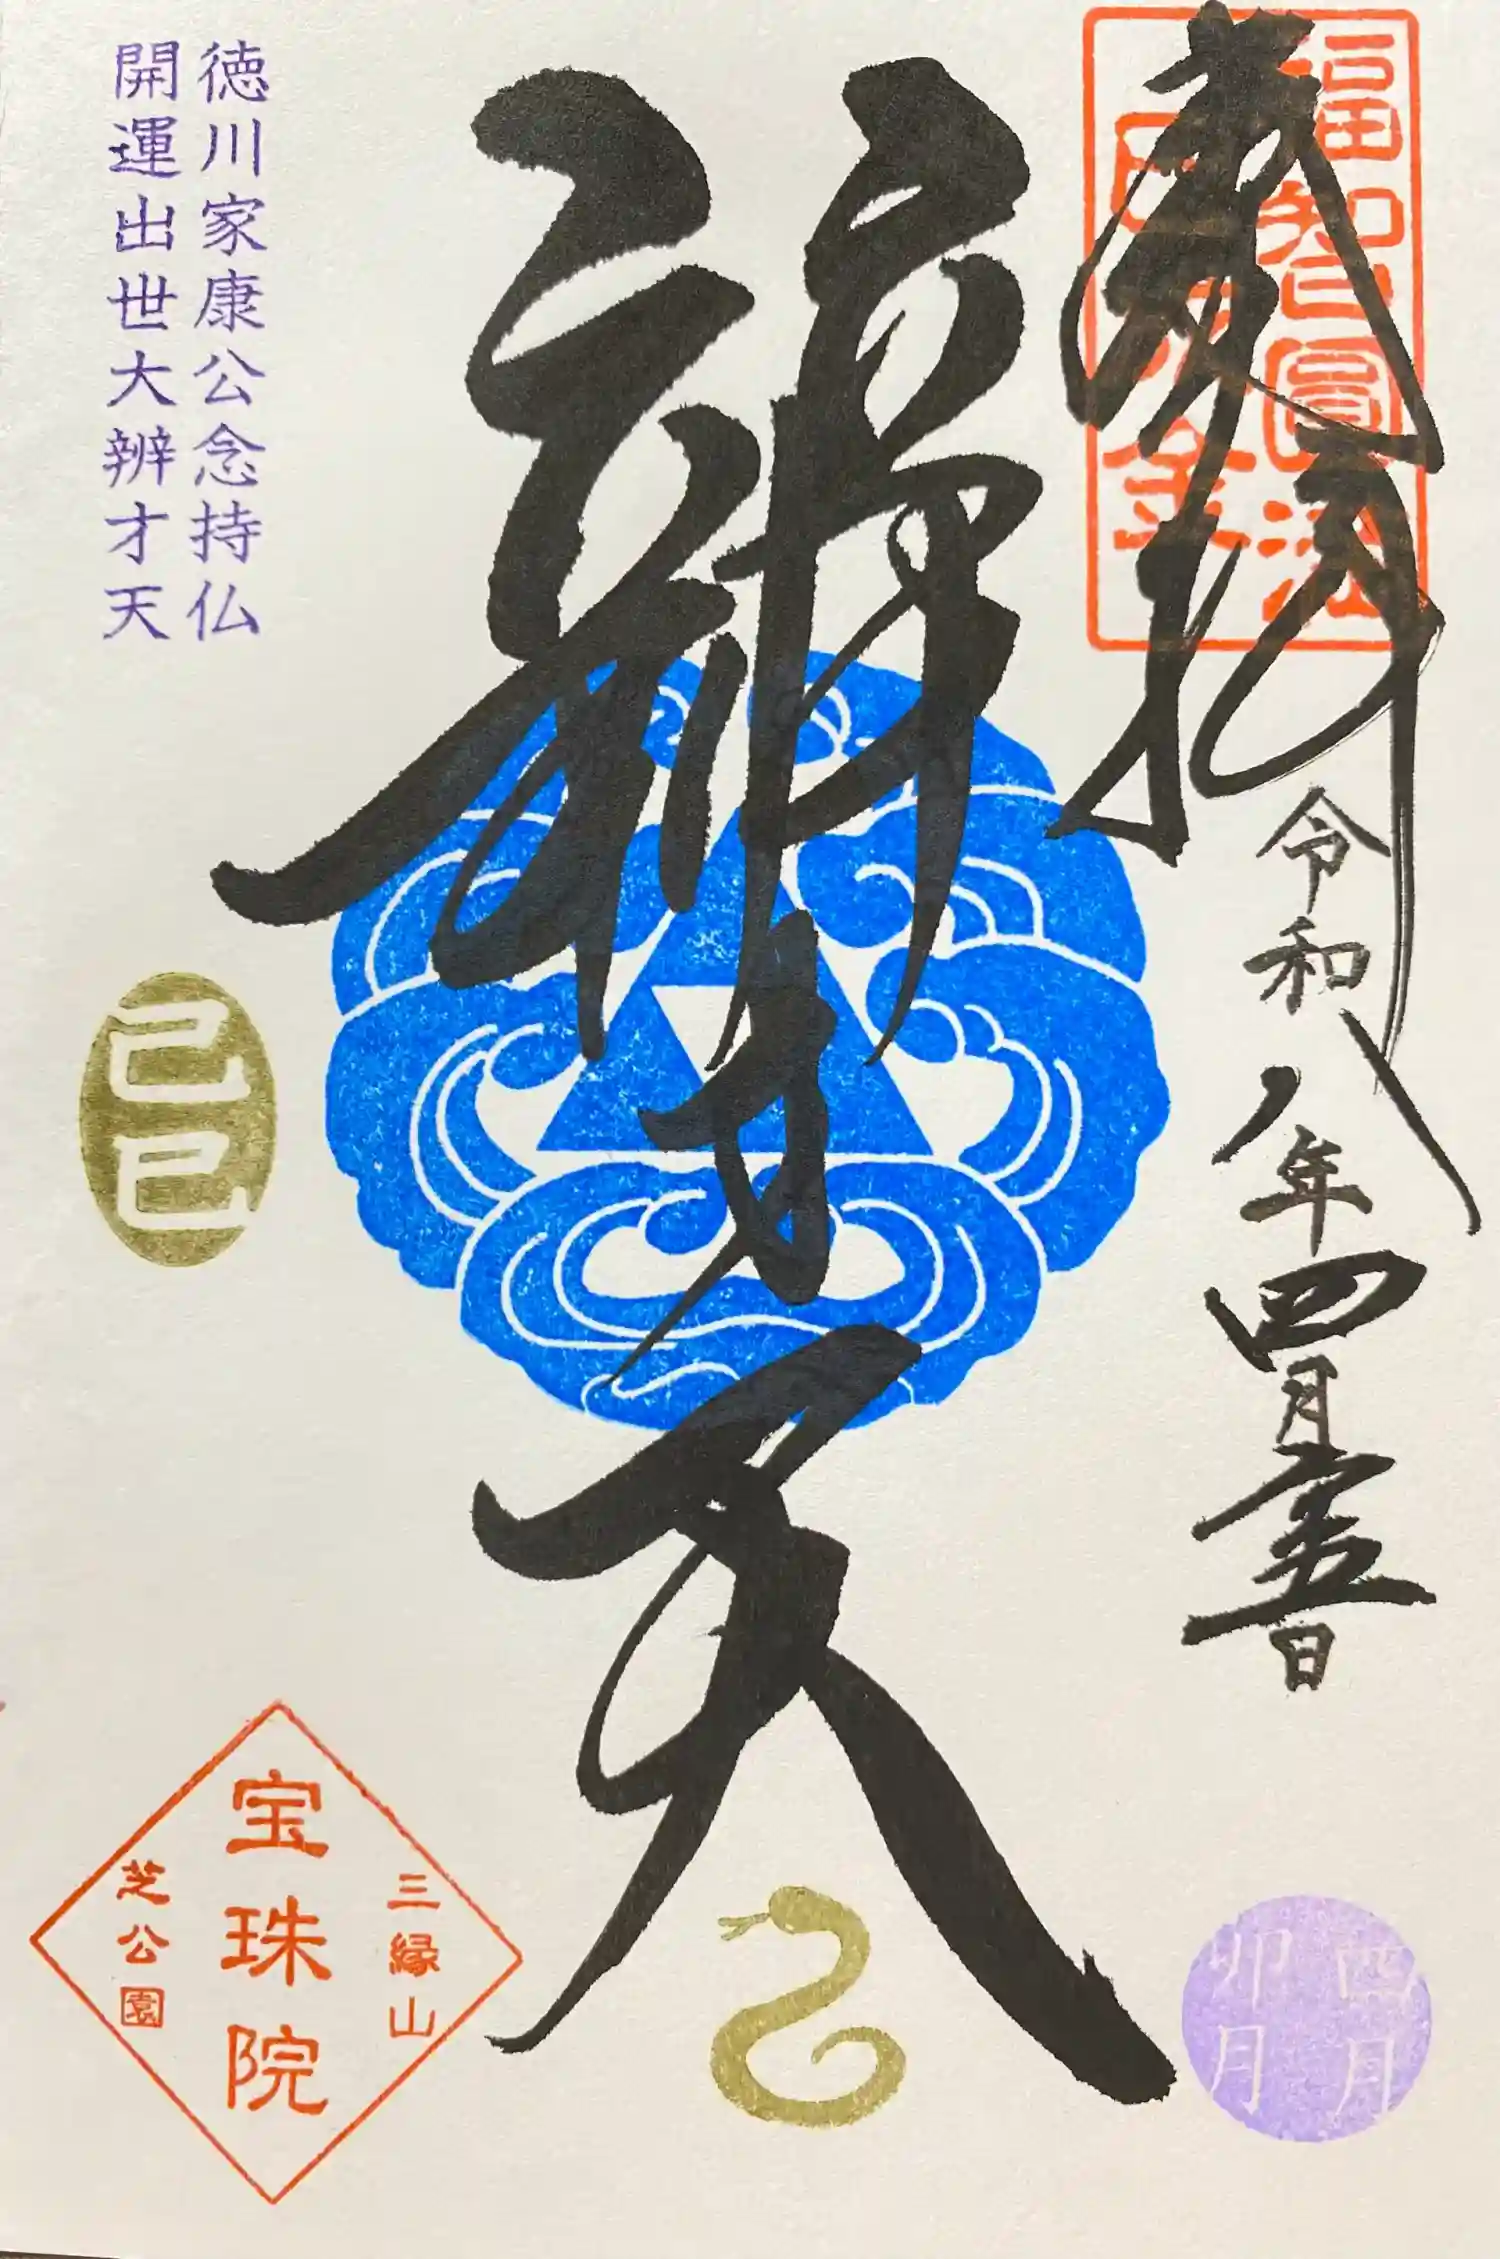 奉拝
福智圓
令和八年四月五日
辨才天
徳川家康公念持仏
開運出世大辨才天
己巳
四月
卯月
三縁山
宝珠院
芝公園